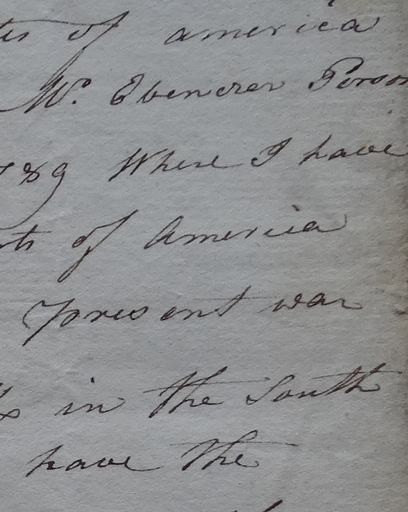 of america
Mr. Ebenezer
789 Where I have
of America
present war
in the South
have the